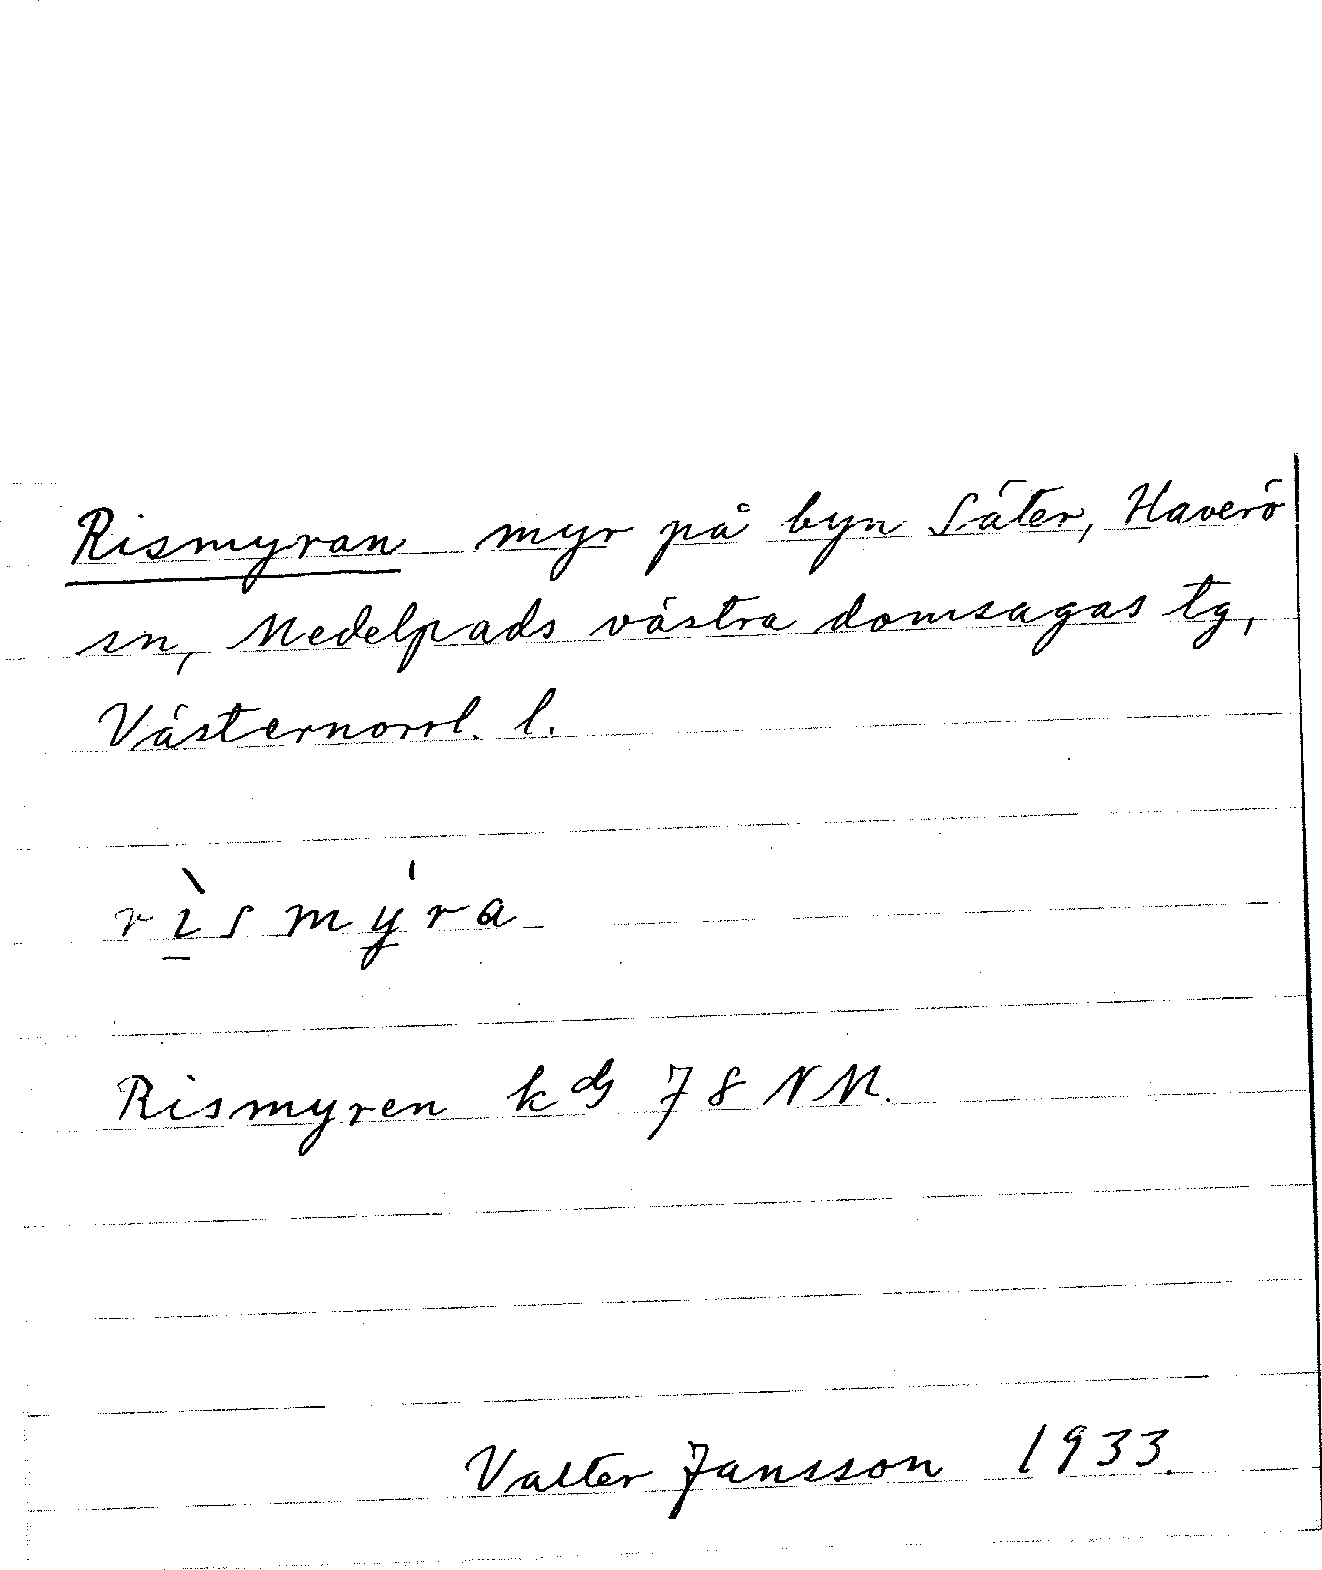 Rismyran myr på byn Säter, Haverö
sn, Medelpads västra domsagas tg,
Västernorrl. l.
rìsmýra
Rismyren kds 78 NM.
Valter Jansson 1933.